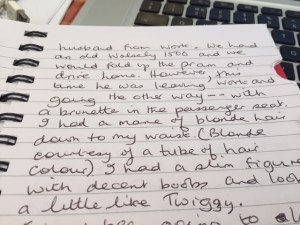 husband from work. We had
an old Wolsely 1500 and we
would fold up the pram and
drive home. However, this
time he was leaving work and
going the other way -- with
a brunette in the passenger seat.
I had a mane of blonde hair
down to my waist (Blonde
courtesy of a tube of hair
colour) I had a slim figure
with decent boobs and look
a little like Twiggy.
going to